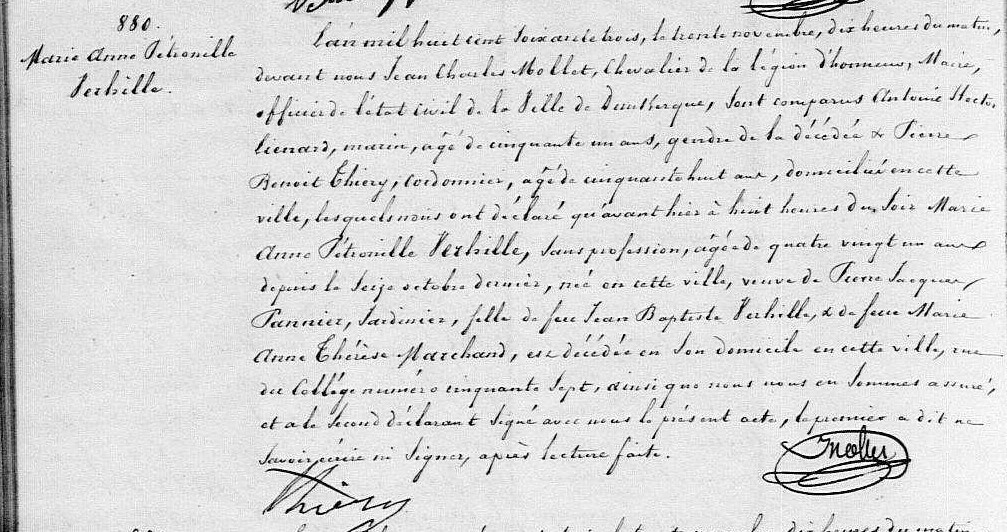 880.
Marie Anne Pétronille
Verhille.
L'an mil huit cent soixante trois, le trente novembre, dix heures du matin,
devant nous Jean Charles Mollet, Chevalier de la légion d'honneur, Maire,
officier de l'état civil de la Ville de Dunkerque, sont comparus Antoine Hector
Lienard, marin, âgé de cinquante un ans, gendre de la décédée & Pierre
Benoit Thiery, Cordonnier, âgé de cinquante huit ans, domiciliés en cette
ville, lesquels nous ont déclaré qu'avant hier à huit heures du Soir Marie
Anne Pétronille Verhille, sans profession, âgée de quatre vingt un ans
depuis le seize octobre dernier, née en cette ville, veuve de Pierre Jacques
Pannier, Jardinier, fille de feu Jean Baptiste Verhille, & de feue Marie
Anne Thérèse Marchand, est décédée en son domicile en cette ville, rue
du Collège numéro cinquante sept, ainsi que nous nous en sommes assuré,
et a le second déclarant signé avec nous le présent acte, le premier a dit ne
savoir écrire ni signer, après lecture faite.
Thiery
dix heures du matin